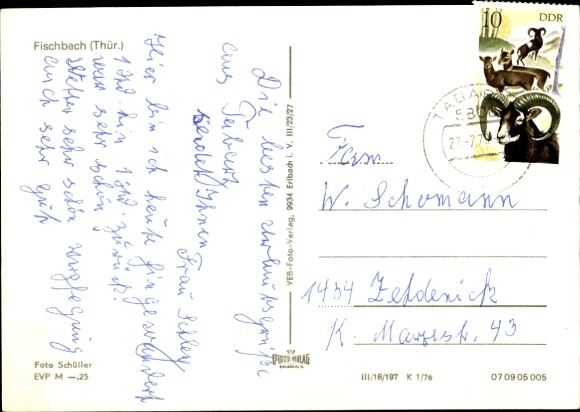 Fischbach (Thür.)
Die besten Urlaubsgrüße
aus Tabarz
sendet Ihnen
Frau
Hier bin ich heute hingewandert
1 Std. hin 1 Std. zurück!
war sehr schön!
Wetter sehr schön Verpflegung
auch sehr gut
Foto Schüller
EVP M —.25
VEB-Foto-Verlag, 9934 Erlbach i. V. III/23/27
VEB
FOTO VERLAG
ERLBACH V.
10 DDR
TABARZ
5808
27.-7.
Fam
W. Schomann
1434 Zehdenick
K. Marxstr. 43
III/18/197 K 1/76
07 09 05 005